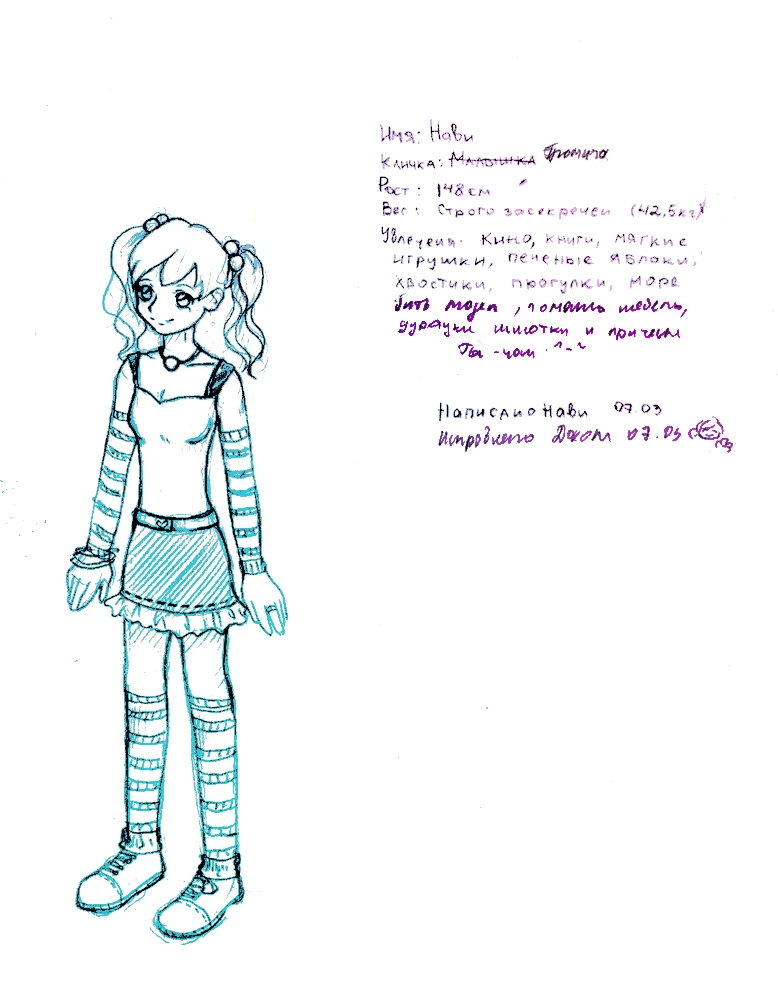 Имя: Нави
Кличка: Малышка Громила
Рост: 148 см
Вес: Строго засекречен (42,5кг)
Увлечения: Кино, книги, мягкие
игрушки, печеные яблоки,
хвостики, прогулки, море
бить, ломать мебель,
и причем
Написано Нави 07.03
07.03